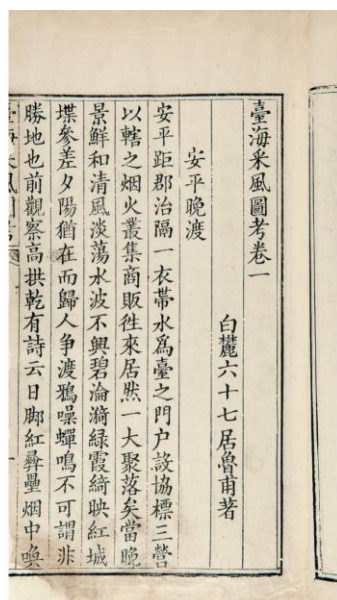 臺海采風圖考卷一
白麓六十七居魯甫著
安平晚渡
安平距郡治隔一衣帶水爲臺之門户設協標三營
以轄之烟火叢集商販徃來居然一大聚落矣當晚
景鮮和清風淡蕩水波不興碧淪漪緑霞綺映紅城
堞參差夕陽猶在而歸人争渡鴉噪蟬鳴不可謂非
勝地也前觀察高拱乾有詩云日脚紅彝壘烟中喚
臺海采風圖考